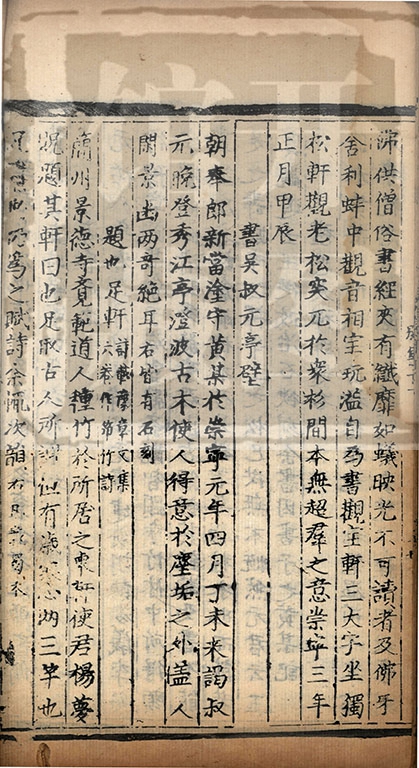 供僧俗書經夾有纖靡如蟻映光不可讀者及佛牙
舍利蚌中觀音相宝玩溢目为書觀宝軒三大字坐獨
松軒觀老松突兀於衆杉間本無超羣之意崇寧三年
正月甲辰
書吴叔元亭壁
朝奉郎新當塗守黄某於崇寧元年四月丁未来謁叔
元晚登秀江亭澄波古木使人得意於塵垢之外盖人
閑景幽两奇絶耳右皆有石刻
題也足軒
詩載豫章文集
六卷作竹詩
簡州景德寺覺範道人種竹於所居之東軒使君楊夢
貺題其軒曰也足取古人所謂但有歳寒心两三竿也
為之賦詩余輒次韻